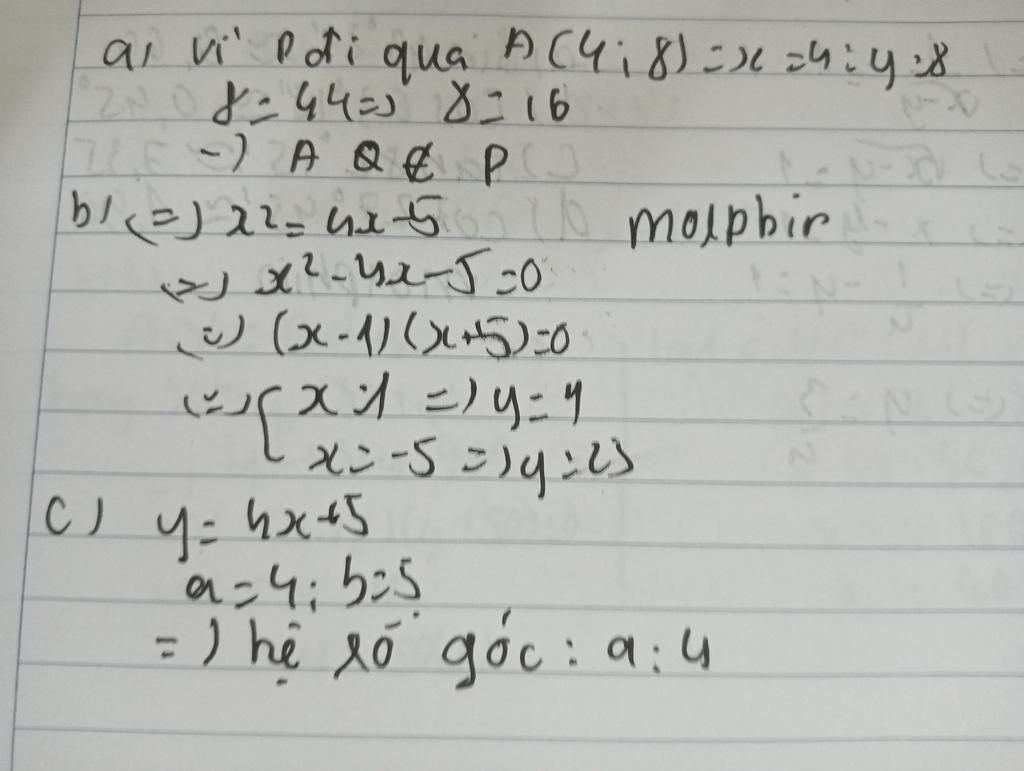 a) vì P đi qua A(4; 8) = x = 4; y = 8
8 = 44 => 8 = 16
=) A ∉ P
b) (=) x2 = 4x+5 malphir
(=) x² - 4x - 5 = 0
(=) (x - 1)(x+5) = 0
(=) { x = 1 =) y = 4
x = -5 =) y = 25
c) y = 4x+5
a = 4; b = 5
=) hệ số góc : a : 4